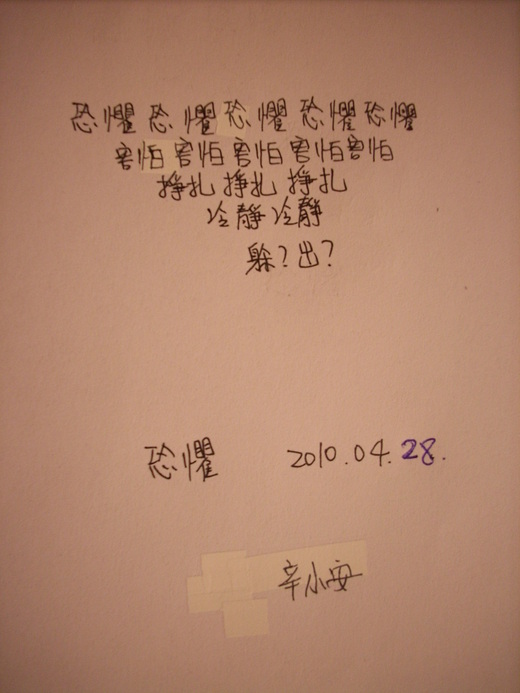 恐懼恐懼恐懼恐懼恐懼
害怕害怕害怕害怕害怕
掙扎掙扎掙扎
冷靜冷靜
躲?出?
恐懼 2010.04.28.
辛小安